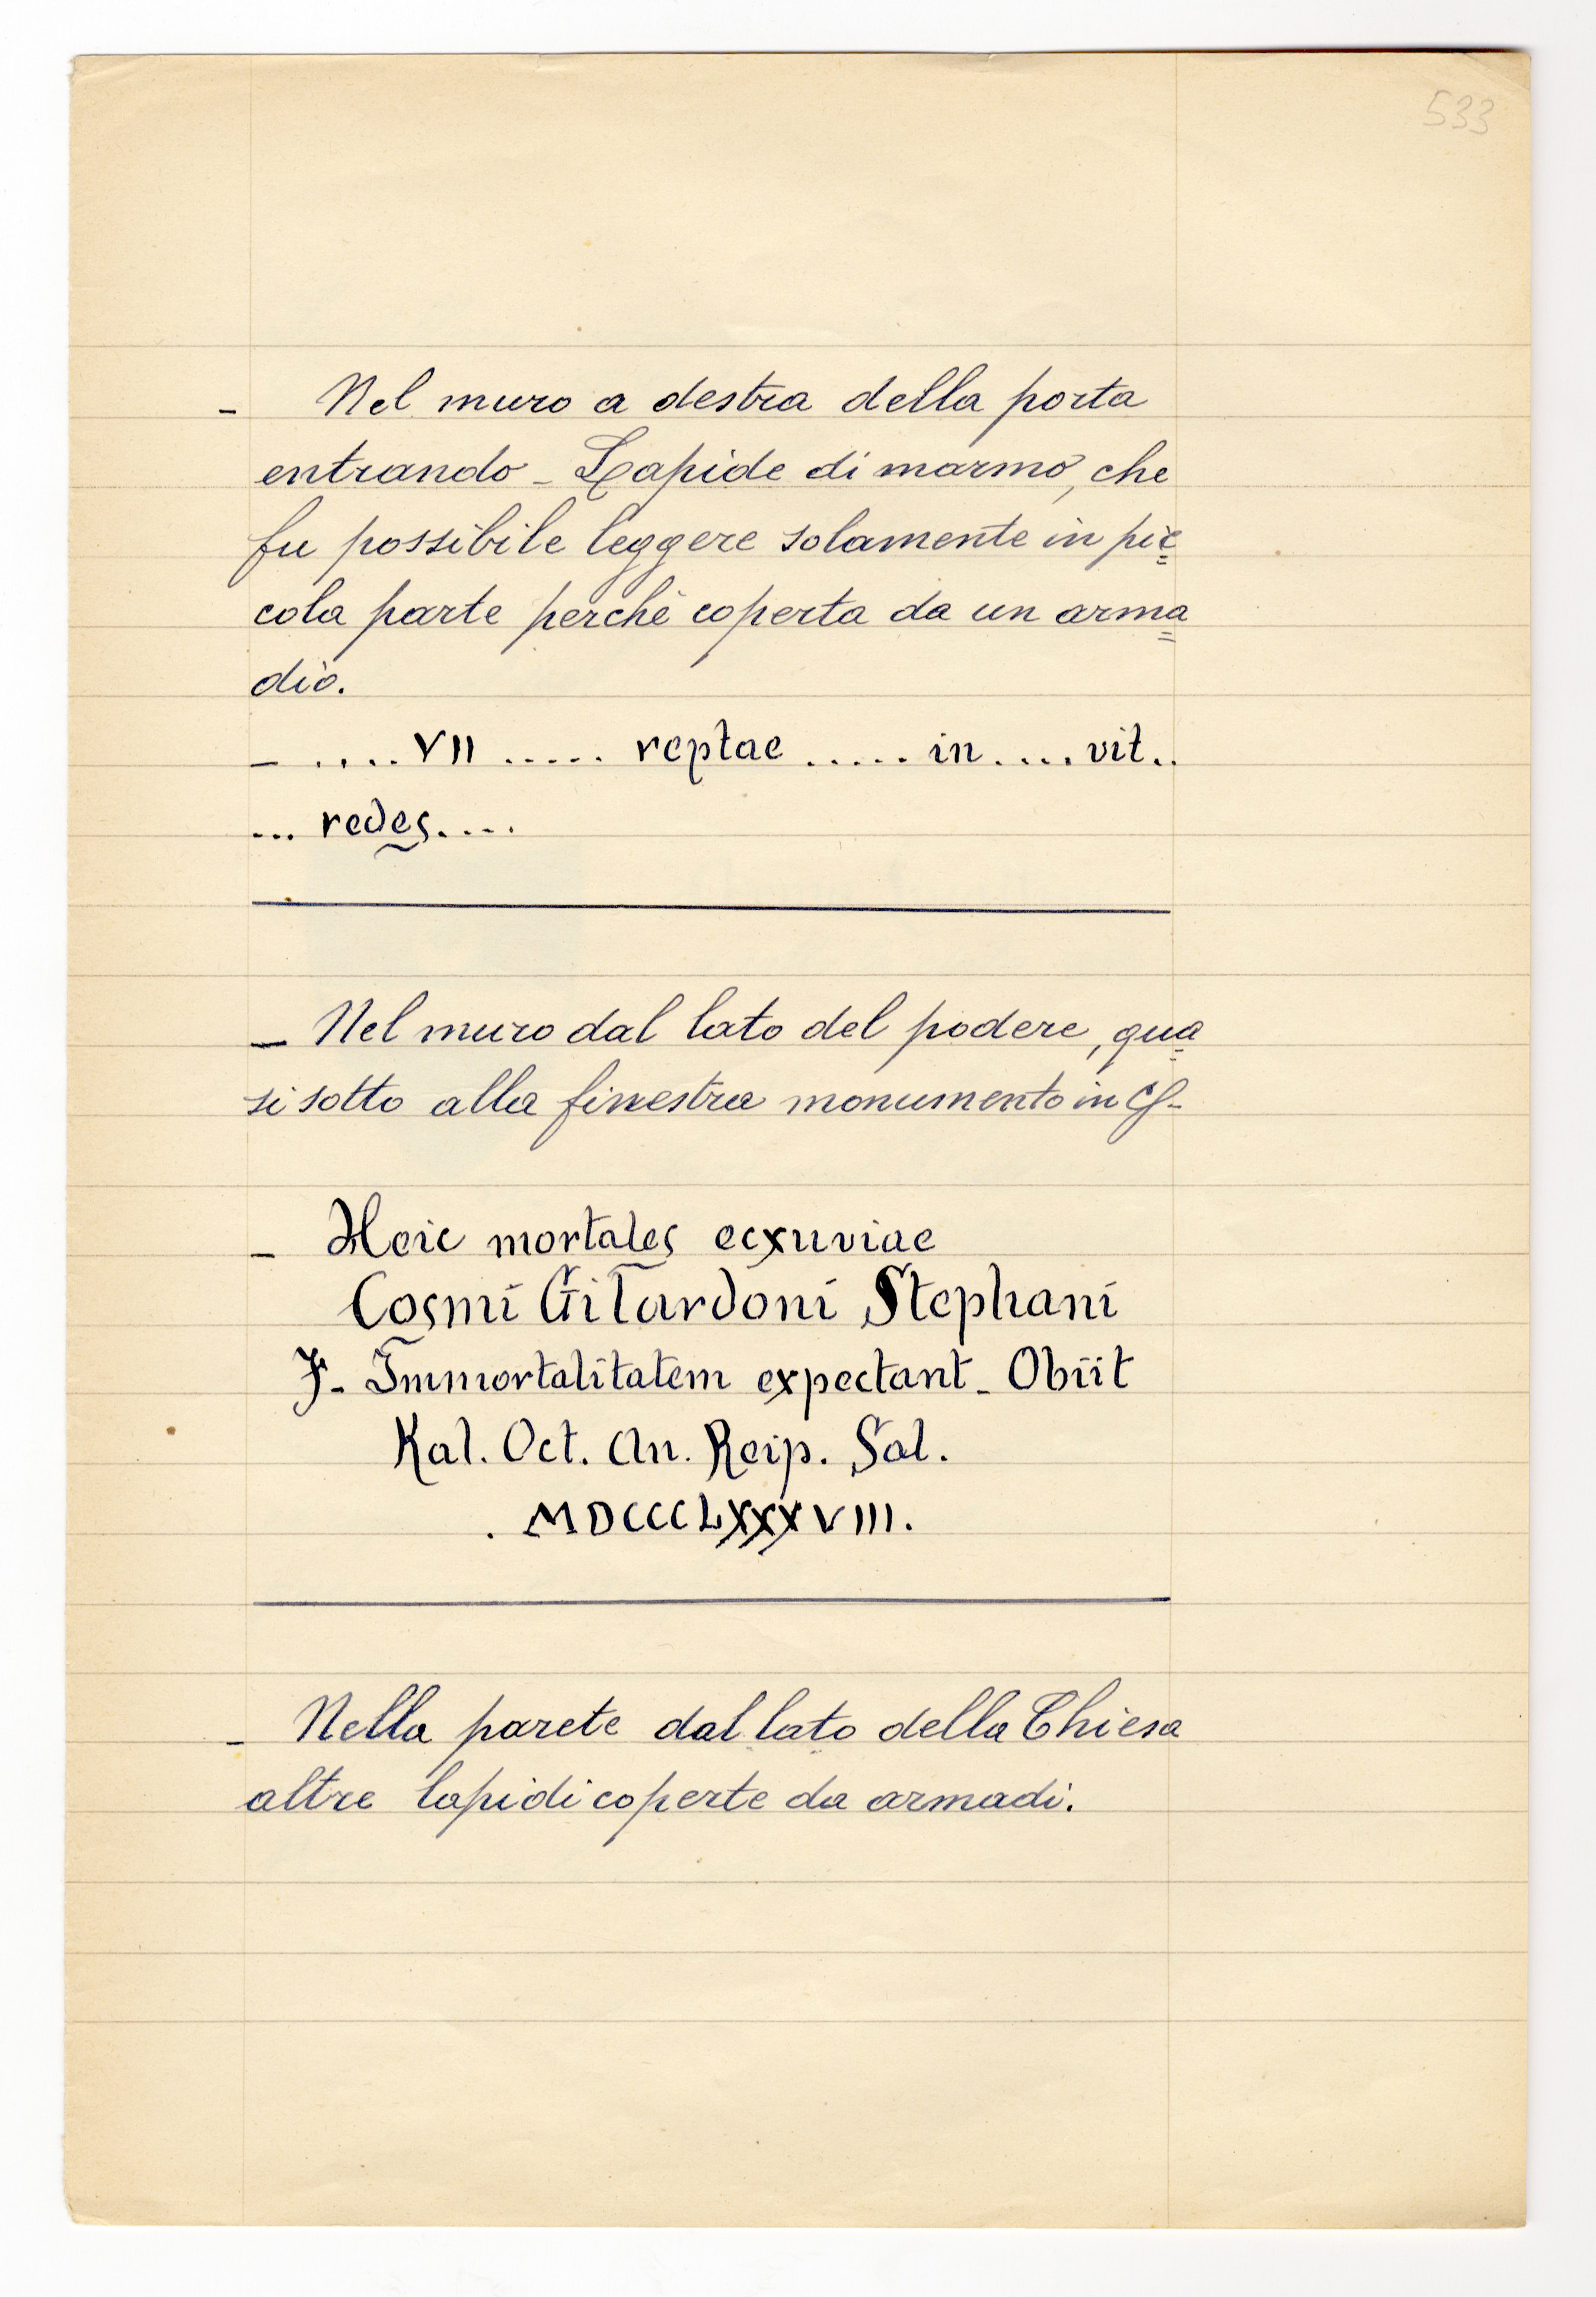 533
- Nel muro a destra della porta
entrando - Lapide di marmo, che
fu possibile leggere solamente in pic=
cola parte perchè coperta da un arma=
dio.
- ....VII ..... reptae ..... in .... vit..
... redes....
- Nel muro dal lato del podere, qua=
si sotto alla finestra monumento in
- Heic mortales ecxuviae
Cosmi Gilardoni Stephani
F. Immortalitatem expectant - Obiit
Kal. Oct. An. Reip. Sal.
. MDCCCLXXXVIII.
- Nella parete dal lato della Chiesa
altre lapidi coperte da armadi.